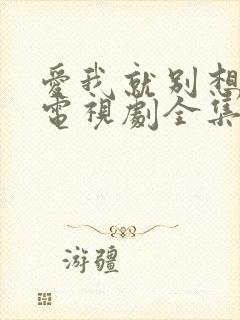 愛我就別想
電視劇全集
游疆